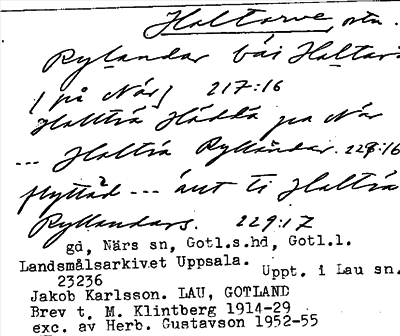 Haltarve, ortn.
Rylandar båi Haltar
[på När] 217:16
Halltrá Hädda pa När
--- Haltrá Rylländar. 228:16
flyttäd --- áut ti Haltrá
Rylländars. 229:17
gd, Närs sn, Gotl.s.hd, Gotl.l.
Landsmålsarkivet Uppsala. Uppt. i Lau sn.
23236
Jakob Karlsson. LAU, GOTLAND
Brev t. M. Klintberg 1914-29
exc. av Herb. Gustavson 1952-55